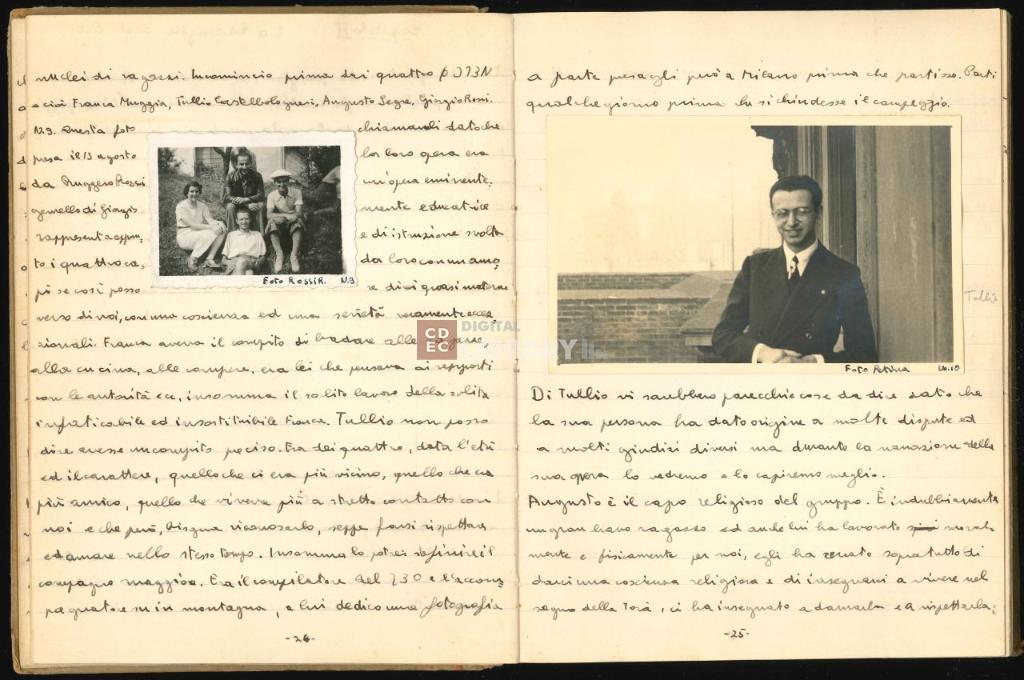 nuclei di ragazzi. Incomincio prima dai quattro
e cioè Franca Muggia, Tullio Castelbolognesi, Augusto Segre, Giorgio Rossi.
N.9. Questa foto
presa il 13 agosto
da Ruggero Rossi
gemello di Giorgio
rappresenta appun-
to i quattro ca,
pi se così posso
chiamandoli dato che
la loro opera era
un'opera eminente,
mente educatrice
e di istruzione svolta
da loro con un amo,
re direi quasi materno
Foto Rossi R. N.9
verso di noi, con una coscienza ed una serietà veramente ecce,
zionali. Franca aveva il compito di badare alle ragazze,
alla cucina, alle compere, era lei che pensava ai rapporti
con le autorità ecc, insomma il solito lavoro della solita
infaticabile ed insostituibile Franca. Tullio non posso
dire avesse un compito preciso. Era dei quattro, data l'età
ed il carattere, quello che ci era più vicino, quello che era
più amico, quello che viveva più a stretto contatto con
noi e che però, bisogna riconoscerlo, seppe farsi rispettare
ed amare nello stesso tempo. Insomma lo potrei definire il
compagno maggiore. Era il compilatore del
pagnatore su in montagna, a lui dedico una fotografia
-24-
a parte presagli però a Milano prima che partisse. Partì
qualche giorno prima che si chiudesse il campeggio.
Foto Petina No.10
Tullio
CDEC DIGITAL LIBRARY
Di Tullio vi sarebbero parecchie cose da dire dato che
la sua persona ha dato origine a molte dispute ed
a molti giudizi diversi ma durante la narrazione della
sua opera lo vedremo e lo capiremo meglio.
Augusto è il capo religioso del gruppo. È indubbiamente
un gran bravo ragazzo ed anche lui ha lavorato moral,
mente e fisicamente per noi, egli ha cercato sopratutto di
darci una coscienza religiosa e di insegnarci a vivere nel
segno della Torà, ci ha insegnato ad amarla e a rispettarla;
-25-